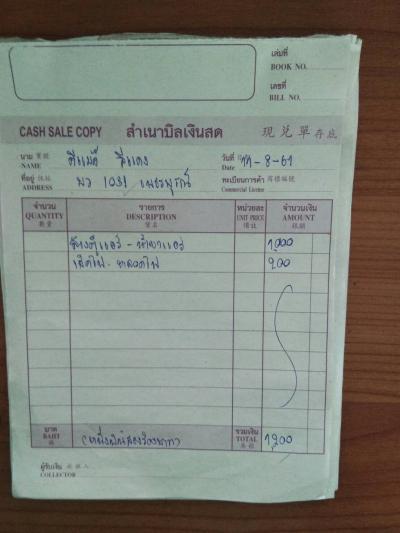 เล่มที่
BOOK NO.
เลขที่
BILL NO.
CASH SALE COPY สำเนาบิลเงินสด 現兑單存底
นาม 寳號 วันที่ 11-8-61
NAME Date
ที่อยู่ 住址 บว 1031 เพชรบูรณ์ ทะเบียนการค้า 商標編號
ADDRESS Commercial License
จำนวน รายการ หน่วยละ จำนวนเงิน
QUANTITY DESCRIPTION UNIT PRICE AMOUNT
數量 貨名 價註 銀額
ล้างตู้แอร์ - น้ำยาแอร์ 1,000
200
บาท รวมเงิน
BAHT (หนึ่งพันสองร้อยบาท) TOTAL 1,200
ผู้รับเงิน 收銀人
COLLECTOR